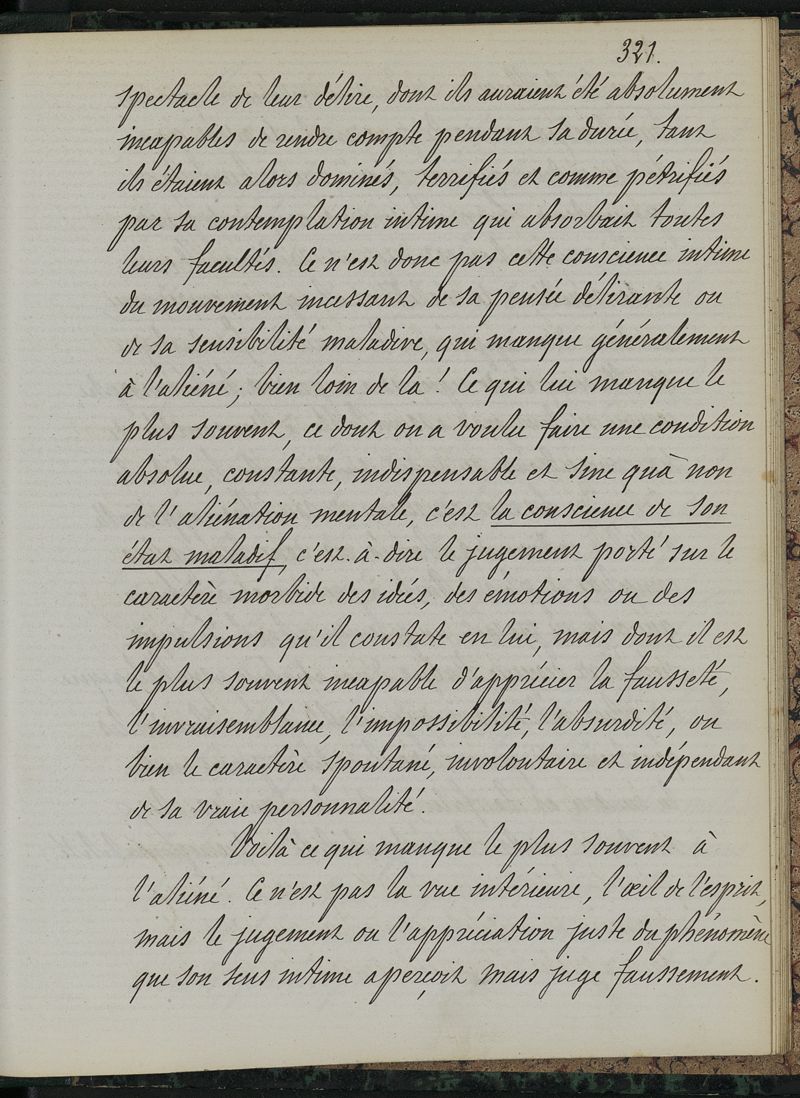 321.
spectacle de leur délire, dont ils auraient été absolument
incapables de rendre compte pendant sa durée, tant
ils étaient alors dominés, terrifiés et comme pétrifiés
par sa contemplation intime qui absorbait toutes
leurs facultés. Ce n'est donc pas cette conscience intime
du mouvement incessant de sa pensée délirante ou
de sa sensibilité maladive, qui manque généralement
à l'aliéné ; bien loin de la ! Ce qui lui manque le
plus souvent, ce dont on a voulu faire une condition
absolue, constante, indispensable et sine quà non
de l'aliénation mentale, c'est la conscience de son
état maladif, c'est-à-dire le jugement porté sur le
caractère morbide des idées, des émotions ou des
impulsions qu'il constate en lui, mais dont il est
le plus souvent incapable d'apprécier la fausseté,
l'invraisemblance, l'impossibilité, l'absurdité, ou
bien le caractère spontané, involontaire et indépendant
de sa vraie personnalité.
Voilà ce qui manque le plus souvent à
l'aliéné. Ce n'est pas la vue intérieure, l'œil de l'esprit,
mais le jugement ou l'appréciation juste du phénomène
que son sens intime aperçoit mais juge faussement.